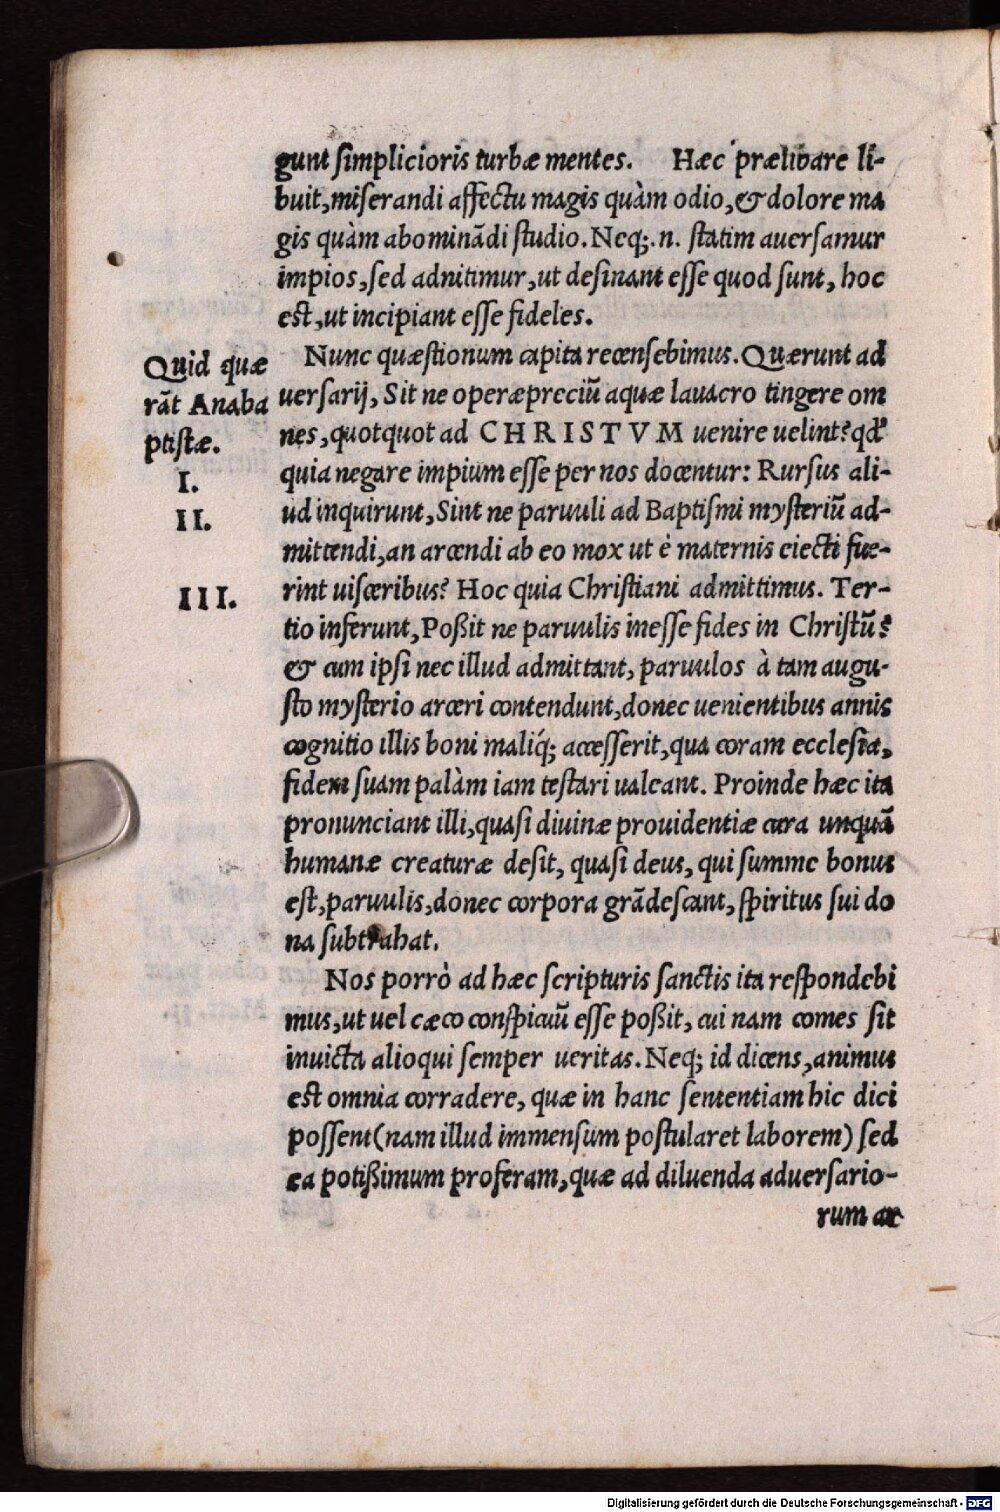 gunt simplicioris turbæ mentes. Hæc prælibare li-
buit, miserandi affectu magis quàm odio, & dolore ma
gis quàm abominãdi studio. Neq;. n. statim auersamur
impios, sed adnitimur, ut desinant esse quod sunt, hoc
est, ut incipiant esse fideles.
Quid quæ
rãt Anaba
ptistæ.
I.
II.
III.
Nunc quæstionum capita recensebimus. Quærunt ad
uersarij, Sit ne operæpreciũ aquæ lauacro tingere om
nes, quotquot ad CHRISTVM uenire uelint? qđ
quia negare impium esse per nos docentur: Rursus ali-
ud inquirunt, Sint ne paruuli ad Baptismi mysteriũ ad-
mittendi, an arcendi ab eo mox ut è maternis eiecti fue-
rint uisceribus? Hoc quia Christiani admittimus. Ter-
tio inferunt, Poßit ne paruulis inesse fides in Christũ?
& cum ipsi nec illud admittant, paruulos à tam augu-
sto mysterio arceri contendunt, donec uenientibus annis
cognitio illis boni maliq́; accesserit, qua coram ecclesia,
fidem suam palàm iam testari ualeant. Proinde hæc ita
pronunciant illi, quasi diuinæ prouidentiæ cura unquã
humanæ creaturæ desit, quasi deus, qui summe bonus
est, paruulis, donec corpora grãdescant, spiritus sui do
na subtrahat.
Nos porrò ad hæc scripturis sanctis ita respondebi
mus, ut uel cæco conspicuũ esse poßit, cui nam comes sit
inuicta alioqui semper ueritas. Neq; id dicens, animus
est omnia corradere, quæ in hanc sententiam hic dici
possent (nam illud immensum postularet laborem) sed
ea potißimum proferam, quæ ad diluenda aduersario-
rum ar
Digitalisierung gefördert durch die Deutsche Forschungsgemeinschaft - DFG